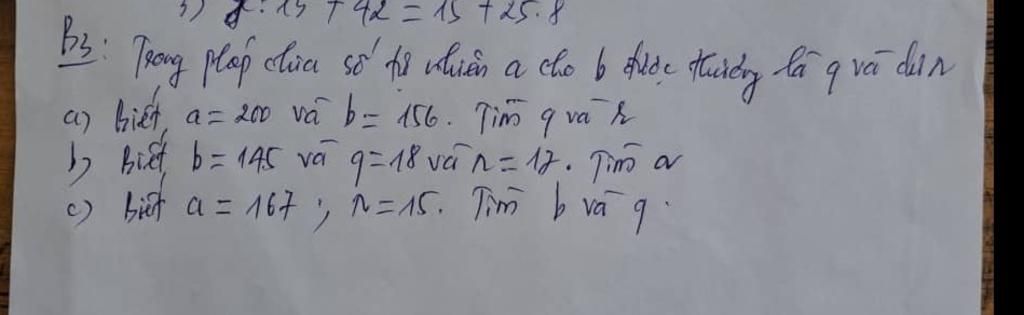 3) x : 15 + 42 = 15 + 25.8
B3: Trong phép chia số tự nhiên a cho b được thương là q và dư r
a) Biết a = 200 và b = 156. Tìm q và r
b) Biết b = 145 và q = 18 và r = 17. Tìm a
c) Biết a = 167 ; r = 15. Tìm b và q.